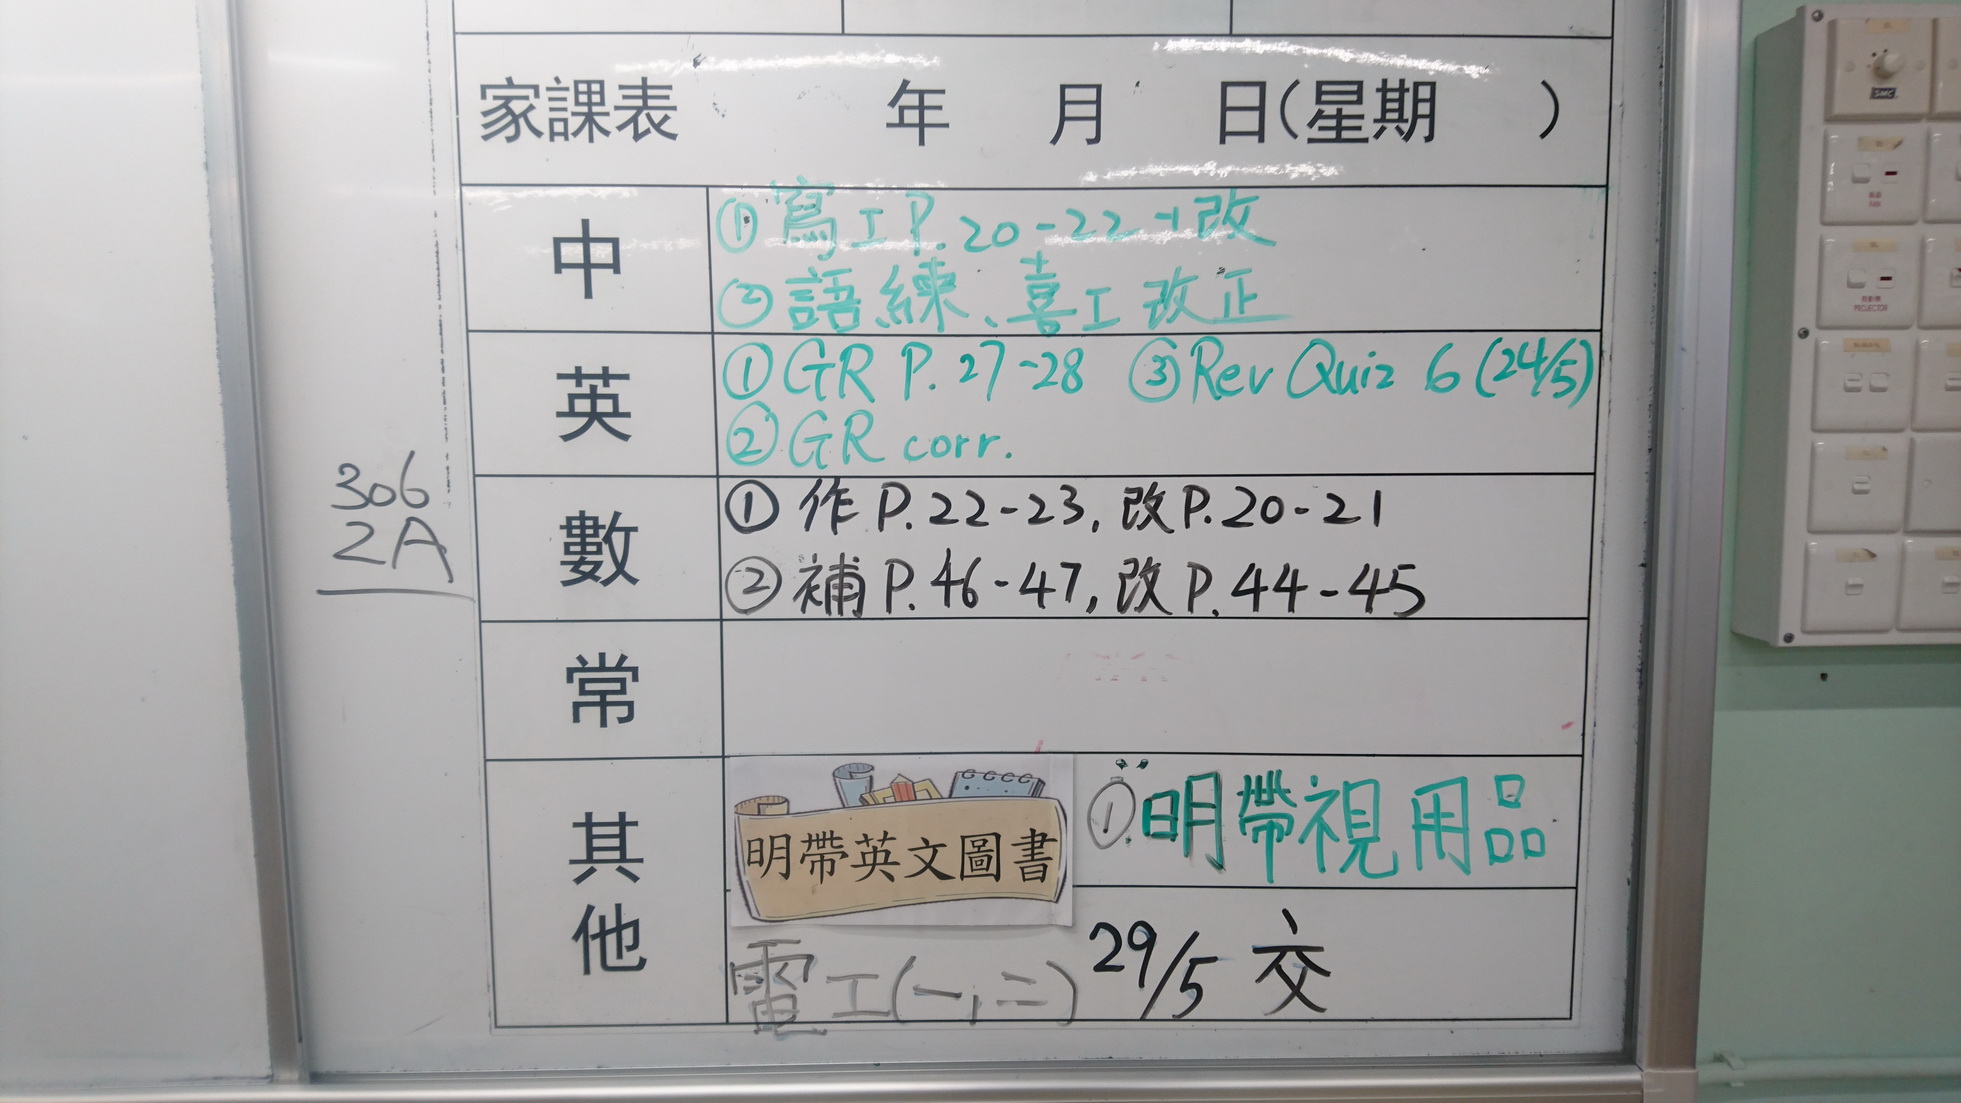 家課表 年 月 日(星期 )
中
①寫工P.20-22→改
②語練、喜工改正
英
①GR P.27-28 ③Rev Quiz 6 (24/5)
②GR corr.
306
2A
數
①作P.22-23,改P.20-21
②補P.46-47,改P.44-45
常
其他
明帶英文圖書
①明帶視用品
電工(一,二) 29/5 交
SMC
PROJECTOR